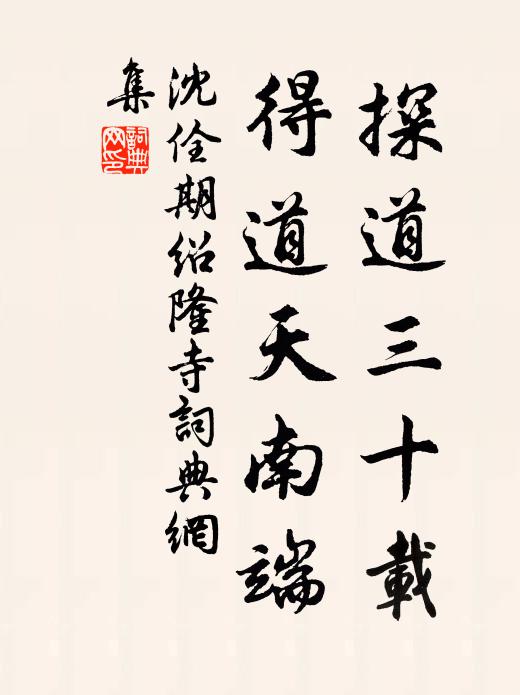 探道三十載
得道天南端
沈佺期紹隆寺詞典網
集
詞典
网印